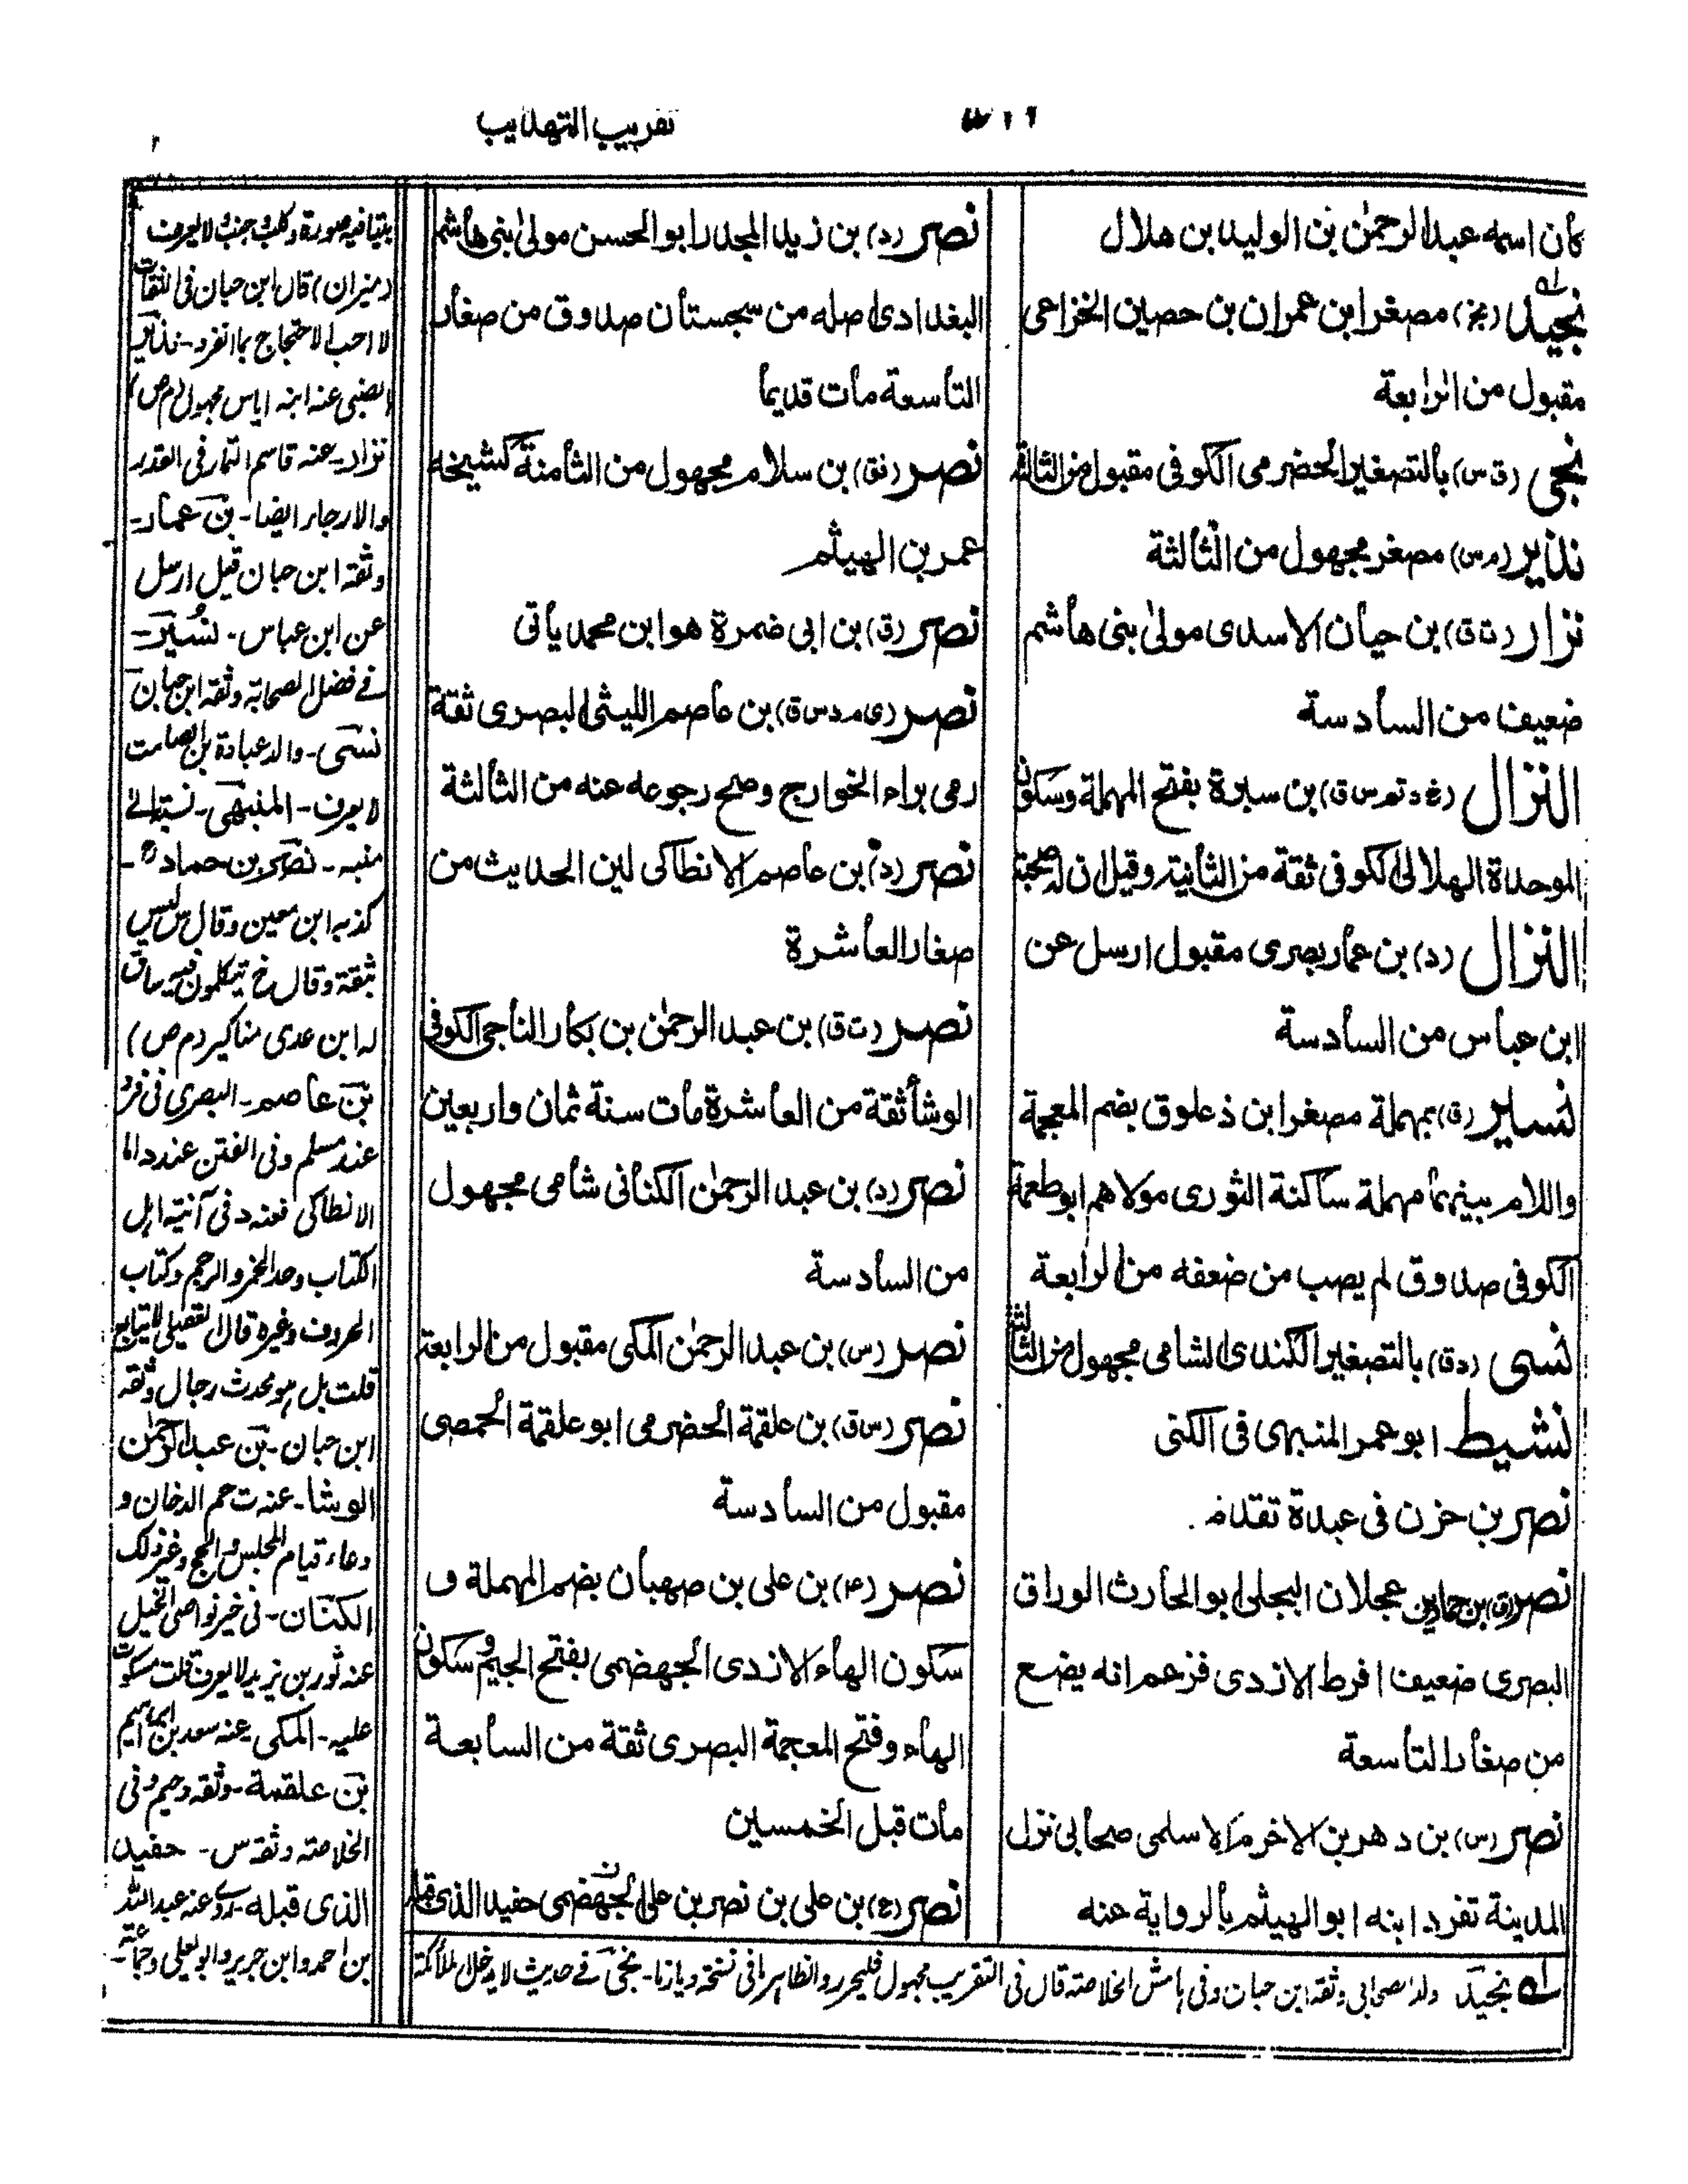 تقريب التهذيب
كان اسمه عبد الرحمٰن بن الوليد بن هلال
نجيد (بخ) مصغر ابن عمران بن حصين الخزاعى
مقبول من الرابعة
نجى (ق س) بالتصغير الحضرمى الكوفى مقبول من الثالثة
نذير (مس) مصغر مجهول من الثالثة
نزار (ت ق) بن حيان الاسدى مولىٰ بنى هاشم
ضعيف من السادسة
النزال (خ د تم س ق) بن سبرة بفتح المهملة وسكون
الموحدة الهلالى الكوفى ثقة من الثانية وقيل ان له صحبة
النزال (د) بن عمار بصرى مقبول ارسل عن
ابن عباس من السادسة
نسير (ق) بمهملة مصغر ابن ذعلوق بضم المعجمة
واللام بينهما مهملة ساكنة الثورى مولاهم ابو طعمة
الكوفى صدوق لم يصب من ضعفه من الرابعة
نسى (د ق) بالتصغير الكندى الشامى مجهول من الثالثة
نشيط ابو عمر المنبهى فى الكنى
نصر بن حزن فى عبدة تقدم.
نصر (ق) بن حماد بن عجلان البجلى ابو الحارث الوراق
البصرى ضعيف افرط الازدى فزعم انه يضع
من صغار التاسعة
نصر (س) بن دهر بن الاخرم الاسلمى صحابى نزل
المدينة تفرد ابنه ابو الهيثم بالرواية عنه
نصر (د) بن زيد المجدر ابو الحسن مولىٰ بنى هاشم
البغدادى اصله من سجستان صدوق من صغار
التاسعة مات قديما
نصر (فق) بن سلام مجهول من الثامنة كشيخه
عمر بن الهيثم
نصر (ق) بن ابى ضمرة هو ابن محمد ياتى
نصر (ى م د س ق) بن عاصم الليثى البصرى ثقة
رمى براء الخوارج وصح رجوعه عنه من الثالثة
نصر (د) بن عاصم الانطاكى لين الحديث من
صغار العاشرة
نصر (ت ق) بن عبد الرحمٰن بن بكار الناجى الكوفى
الوشا ثقة من العاشرة مات سنة ثمان واربعين
نصر (د) بن عبد الرحمٰن الكنانى شامى مجهول
من السادسة
نصر (س) بن عبد الرحمٰن المكى مقبول من الرابعة
نصر (س ق) بن علقمة الحضرمى ابو علقمة الحمصى
مقبول من السادسة
نصر (عه) بن على بن صهبان بضم المهملة و
سكون الهاء الازدى الجهضمى بفتح الجيم وسكون
الهاء وفتح المعجمة البصرى ثقة من السابعة
مات قبل الخمسين
نصر (ع) بن على بن نصر بن على الجهضمى حفيد الذى قبله
بيتا فيه صورة وكلب وجنب لا يعرف
(ميزان) قال ابن حبان فى الثقات
لا احب الاحتجاج بما انفرد - نذير
الضبى عنه ابنه اياس مجهول (م ص)
نزار - عنه قاسم التمار فى القدر
والارجاء ايضا - بن عمار -
وثقه ابن حبان قيل ارسل
عن ابن عباس - نسير -
فى فضل الصحابة وثقه ابن حبان
نسى - والد عبادة بن الصامت
لا يعرف - المنبهى - نسبة الى
منبه - نصر بن حماد -
كذبه ابن معين وقال س ليس
بثقة وقال خ يتكلمون فيه ساق
له ابن عدى مناكير (م ص)
بن عاصم - البصرى فى فرد
عند مسلم وفى الفتن عند د اما
الانطاكى فعند د فى آنية اهل
الكتاب وحد الخمر والرجم وكتاب
الحروف وغيره قال العقيلى لا يتابع
قلت بل هو محدث رجال وثقه
ابن حبان - بن عبد الرحمٰن
الوشا - عند ت حم الدخان و
دعاء قيام المجلس والحج وغير ذلك
الكنانى - فى خير نواصى الخيل
عنه ثور بن يزيد لا يعرف قلت مسكوت
عليه - المكى عنه سعد بن ابراهيم
بن علقمة - وثقه دحيم وفى
الخلاصة وثقه س - حفيد
الذى قبله - روى عنه عبد الله
بن احمد وابن جرير وابو يعلى وجماعة -
له نجيد ولد الصحابى وثقه ابن حبان وفى هامش الخلاصة قال فى التقريب مجهول فليحرر والظاهر ما فى نسخة ديارنا - نجى فى حديث لا يدخل الملائكة